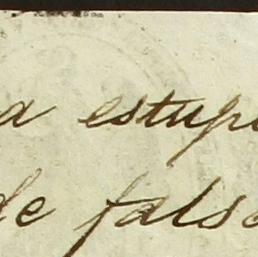 a estupi
de falso